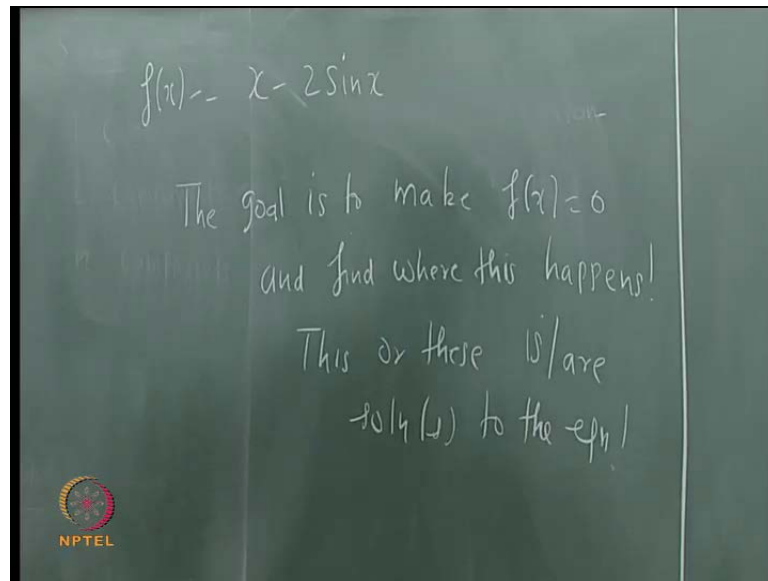 f(x) = x - 2 sin x
The goal is to make f(x) = 0
and find where this happens!
This or these is/are
soln(s) to the eqn!
NPTEL